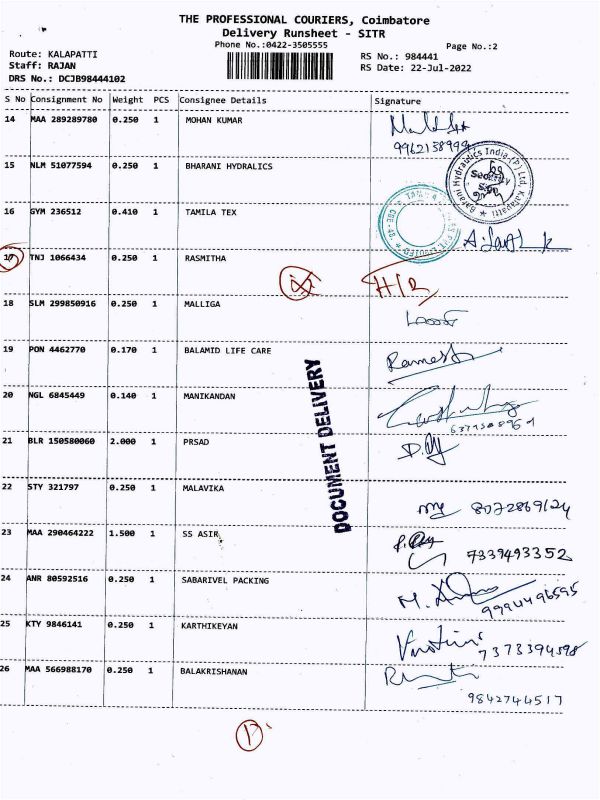 THE PROFESSIONAL COURIERS, Coimbatore
Delivery Runsheet - SITR
Phone No.:0422-3505555
Page No.:2
Route: KALAPATTI
RS No.: 984441
Staff: RAJAN
RS Date: 22-Jul-2022
DRS No.: DCJB98444102
S No Consignment No Weight PCS Consignee Details Signature
14 MAA 289289780 0.250 1 MOHAN KUMAR
9962138999
15 NLM 51077594 0.250 1 BHARANI HYDRALICS
Hydraulics India (P) Ltd, Kalapatti
Security
16 GYM 236512 0.410 1 TAMILA TEX
17 TNJ 1066434 0.250 1 RASMITHA
H/R
18 SLM 299850916 0.250 1 MALLIGA
19 PON 4462770 0.170 1 BALAMID LIFE CARE
Ramesh
20 NGL 6845449 0.140 1 MANIKANDAN
21 BLR 150580060 2.000 1 PRSAD
DOCUMENT DELIVERY
22 STY 321797 0.250 1 MALAVIKA
8072869124
23 MAA 290464222 1.500 1 SS ASIR
7339493352
24 ANR 80592516 0.250 1 SABARIVEL PACKING
9994496595
25 KTY 9846141 0.250 1 KARTHIKEYAN
7373394598
26 MAA 566988170 0.250 1 BALAKRISHANAN
9842744517